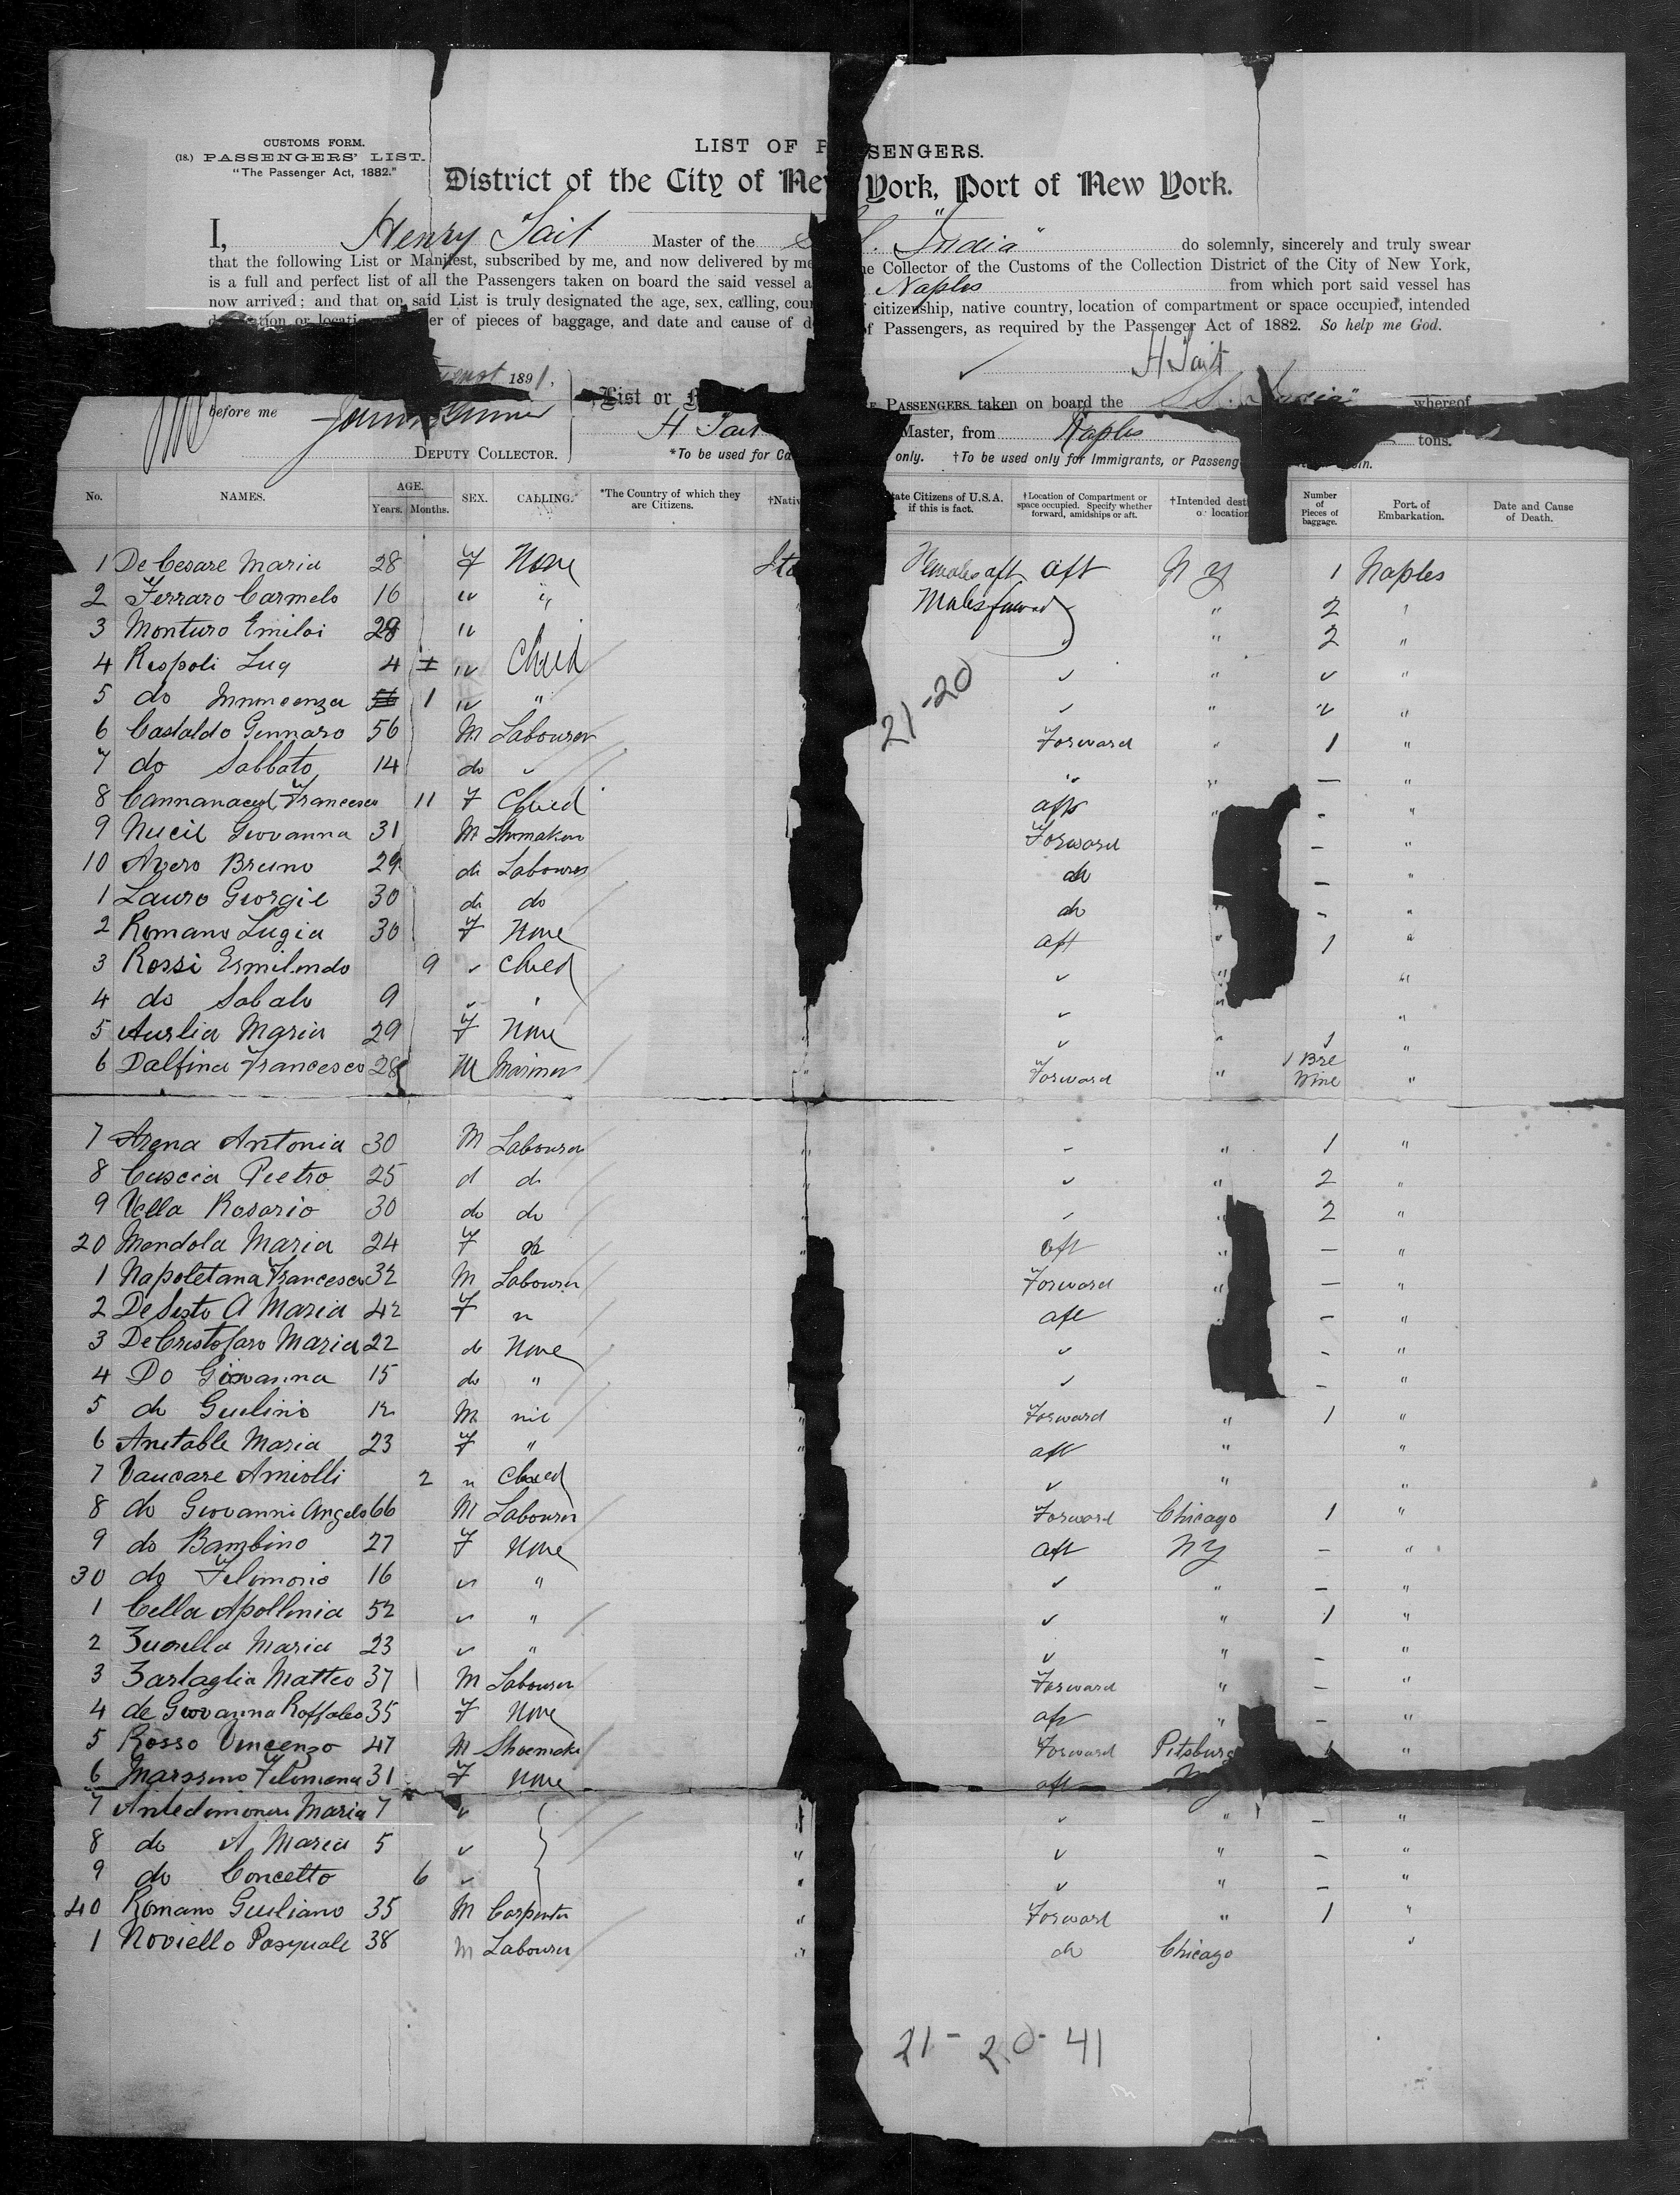 CUSTOMS FORM.
(18.) PASSENGERS' LIST.
"The Passenger Act, 1882."
LIST OF P SENGERS.
District of the City of New York, Port of New York.
I, Henry Tait Master of the S.S. "India" do solemnly, sincerely and truly swear
that the following List or Manifest, subscribed by me, and now delivered by me he Collector of the Customs of the Collection District of the City of New York,
is a full and perfect list of all the Passengers taken on board the said vessel a Naples from which port said vessel has
now arrived; and that on said List is truly designated the age, sex, calling, cou citizenship, native country, location of compartment or space occupied, intended
er of pieces of baggage, and date and cause of d f Passengers, as required by the Passenger Act of 1882. So help me God.
H Tait
ugust 1891,
before me
List or PASSENGERS taken on board the S.S. India" whereof
H Tait Master, from Naples tons.
DEPUTY COLLECTOR.
*To be used for Ca only. †To be used only for Immigrants, or Passeng
No. NAMES. AGE. Years. Months. SEX. CALLING.* *The Country of which they are Citizens. †Nativ tate Citizens of U.S.A. if this is fact. †Location of Compartment or space occupied. Specify whether forward, amidships or aft. †Intended dest or location Number of Pieces of baggage. Port of Embarkation. Date and Cause of Death.
1 De Cesare Maria 28 F None Ita Females aft aft N Y 1 Naples
2 Ferraro Carmelo 16 " " Males forward " 2 "
3 Monturo Emiloi 28 " " " 2 "
4 Respoli Luq 4 1 " Child " " "
5 do 56 1 " " " " "
21-20
6 Castaldo Gennaro 56 M Labourer Forward " 1 "
7 do Sabbato 14 do " " " — "
8 Francesco 11 F Child aft " - "
9 Nucil Giovanna 31 M Shomaker Forward - "
10 Avero Bruno 29 do Labourer do - "
1 Lauro Giorgie 30 do do do - "
2 Romano Lugia 30 F None aft " 1 "
3 Rossi Ermilindo 9 " Child " " "
4 do Sabato 9 " " " " "
5 Aurlia Maria 29 F None " " 1 "
6 Dalfina Francesco 28 M Mariner Forward " 1 Bre Wine "
7 Arena Antonia 30 M Labourer " " " 1 "
8 Cuscia Pietro 25 d do " " " 2 "
9 Vella Rosario 30 do do " " " 2 "
20 Mendola Maria 24 F do " aft " — "
1 Napoletana Francesco 32 M Labourer Forward " — "
2 De Sisto A Maria 42 F " aft - "
3 De Cristofaro Maria 22 do None " - "
4 Do Giovanna 15 do " " - "
5 do Guilinio 12 M nil " Forward " 1 "
6 Anetable Maria 23 F " " aft " "
7 Vaucare Amiolli 2 " Child " " "
8 do Giovanni Angelo 66 M Labourer Forward Chicago 1 "
9 do Bambino 27 F None aft N Y - "
30 do Filomonio 16 " " " " - "
1 Cella Apollonia 52 " " " " 1 "
2 Zuorella Maria 23 " " " " - "
3 Zarlaglia Matteo 37 M Labourer Forward " - "
4 de Giovanna Roffaleo 35 F None aft " - "
5 Rosso Vincenzo 47 M Shoemake Forward Pitsburg "
6 Marsreno Filomena 31 F None aft
7 Maria 7 " " " " - "
8 do A Maria 5 " " " " - "
9 do Concetto 6 " " " " - "
40 Romano Guiliano 35 M Carpenter " Forward " 1 "
1 Noviello Pasquale 38 M Labourer " do Chicago "
21 - 20 - 41